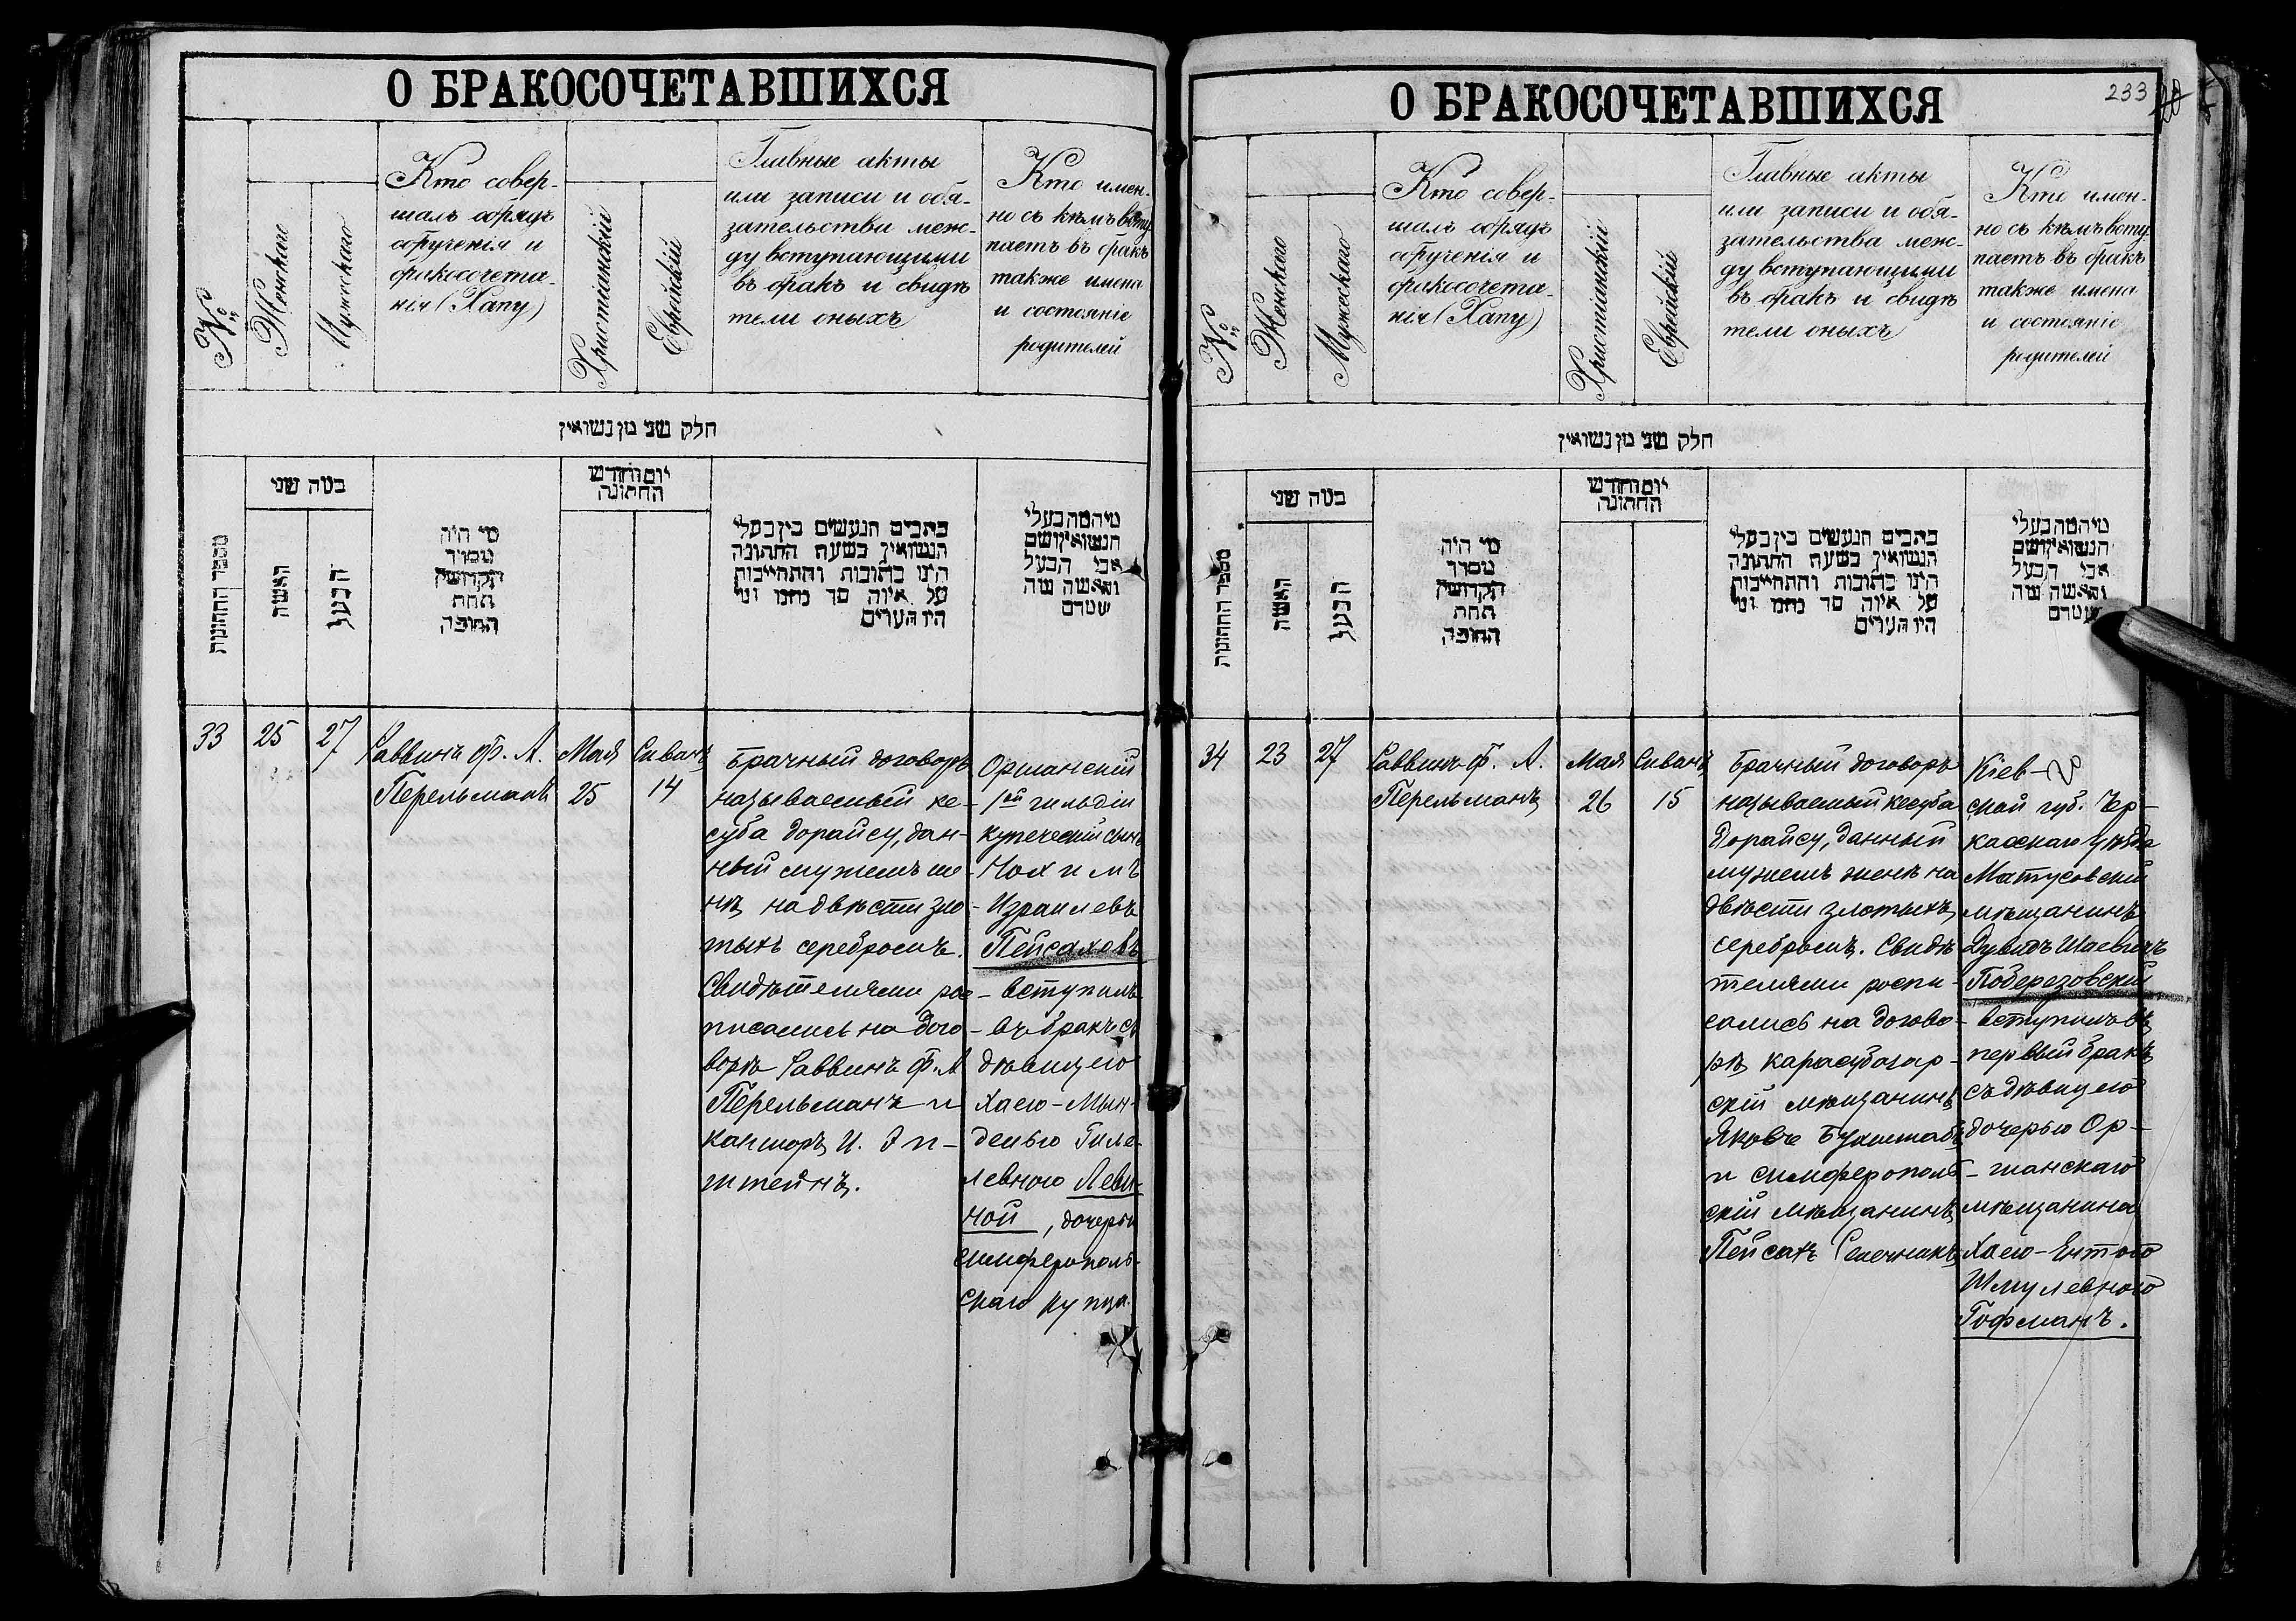 О БРАКОСОЧЕТАВШИХСЯ
№
Женскаго
Мужескаго
Кто совер-
шалъ обрядъ
обрученія и
бракосочета-
нія (Хапу)
Христіанскій
Еврейскій
Главные акты
или записи и обя-
зательства меж-
ду вступающими
въ бракъ и свидѣ
тели оныхъ
Кто имен-
но съ кѣмъ всту
паетъ въ бракъ
также имена
и состояніе
родителей
חלק שני מן נשואין
מספר החתונות
האשה
הבעל
מי היה
מסדר
הקדושין
תחת
החופה
יום וחודש
החתונה
כתבים הנעשים בין בעלי
הנשואין בשעת החתונה
היינו כתובות והתחייבות
היו העדים
33
25
27
Раввинъ Ф. А.
Перельманъ
Мая
25
Сиванъ
14
Брачный договоръ
называемый ке-
суба дорайсу, дан-
ный мужемъ же-
нѣ на двѣсти зло-
тыхъ серебромъ.
Свидѣтелями рос-
писались на дого-
ворѣ Раввинъ Ф. А
Перельманъ и
канторъ И. Эп-
штейнъ.
Оршанскій
1ой гильдіи
купеческій сынъ
Нохимъ
Израилевъ
Пейсаховъ
вступилъ
въ бракъ съ
дѣвицею
Хаею-Мин-
делью Гиле-
левною Леви-
ной, дочерью
симферополь-
скаго купца.
О БРАКОСОЧЕТАВШИХСЯ
233
№
Женскаго
Мужескаго
Кто совер-
шалъ обрядъ
обрученія и
бракосочета-
нія (Хапу)
Христіанскій
Еврейскій
Главные акты
или записи и обя-
зательства меж-
ду вступающими
въ бракъ и свидѣ
тели оныхъ
Кто имен-
но съ кѣмъ всту
паетъ въ бракъ
также имена
и состояніе
родителей
חלק שני מן נשואין
מספר החתונות
האשה
הבעל
מי היה
מסדר
הקדושין
תחת
החופה
יום וחודש
החתונה
כתבים הנעשים בין בעלי
הנשואין בשעת החתונה
היינו כתובות והתחייבות
היו העדים
34
23
27
Раввинъ Ф. А.
Перельманъ
Мая
26
Сиванъ
15
Брачный договоръ
называемый кесуба
дорайсу, данный
мужемъ женѣ на
двѣсти злотыхъ
серебромъ. Свидѣ
телями роспи-
сались на догово-
рѣ карасубазар-
скій мѣщанинъ
Яковъ
и симферополь-
скій мѣщанинъ
Пейсахъ
Кіев-
ской губ. Чер-
касскаго уѣзда
Матусовскій
мѣщанинъ
Дувидъ Шаевичъ
Поберезовскій
вступилъ въ
первый бракъ
съ дѣвицею
дочерью Ор-
шанскаго
мѣщанина
Хаею-Ентою
Шмулевною
Гофманъ.